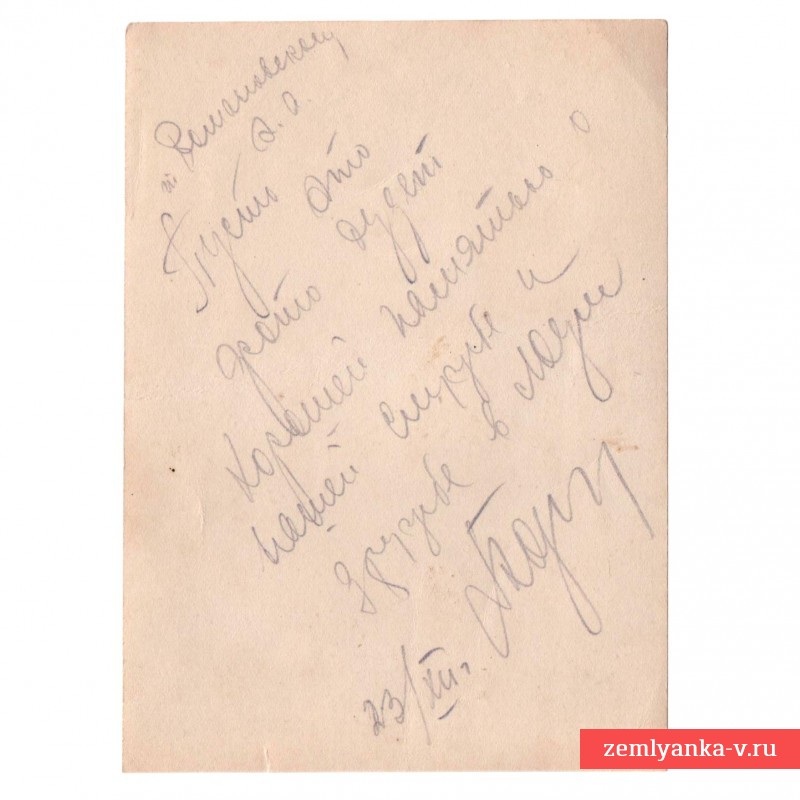 т.
А. А.
Пусть это
фото будет
хорошей памятью о
нашей службе и
дружбе в
23/XII.
zemlyanka-v.ru